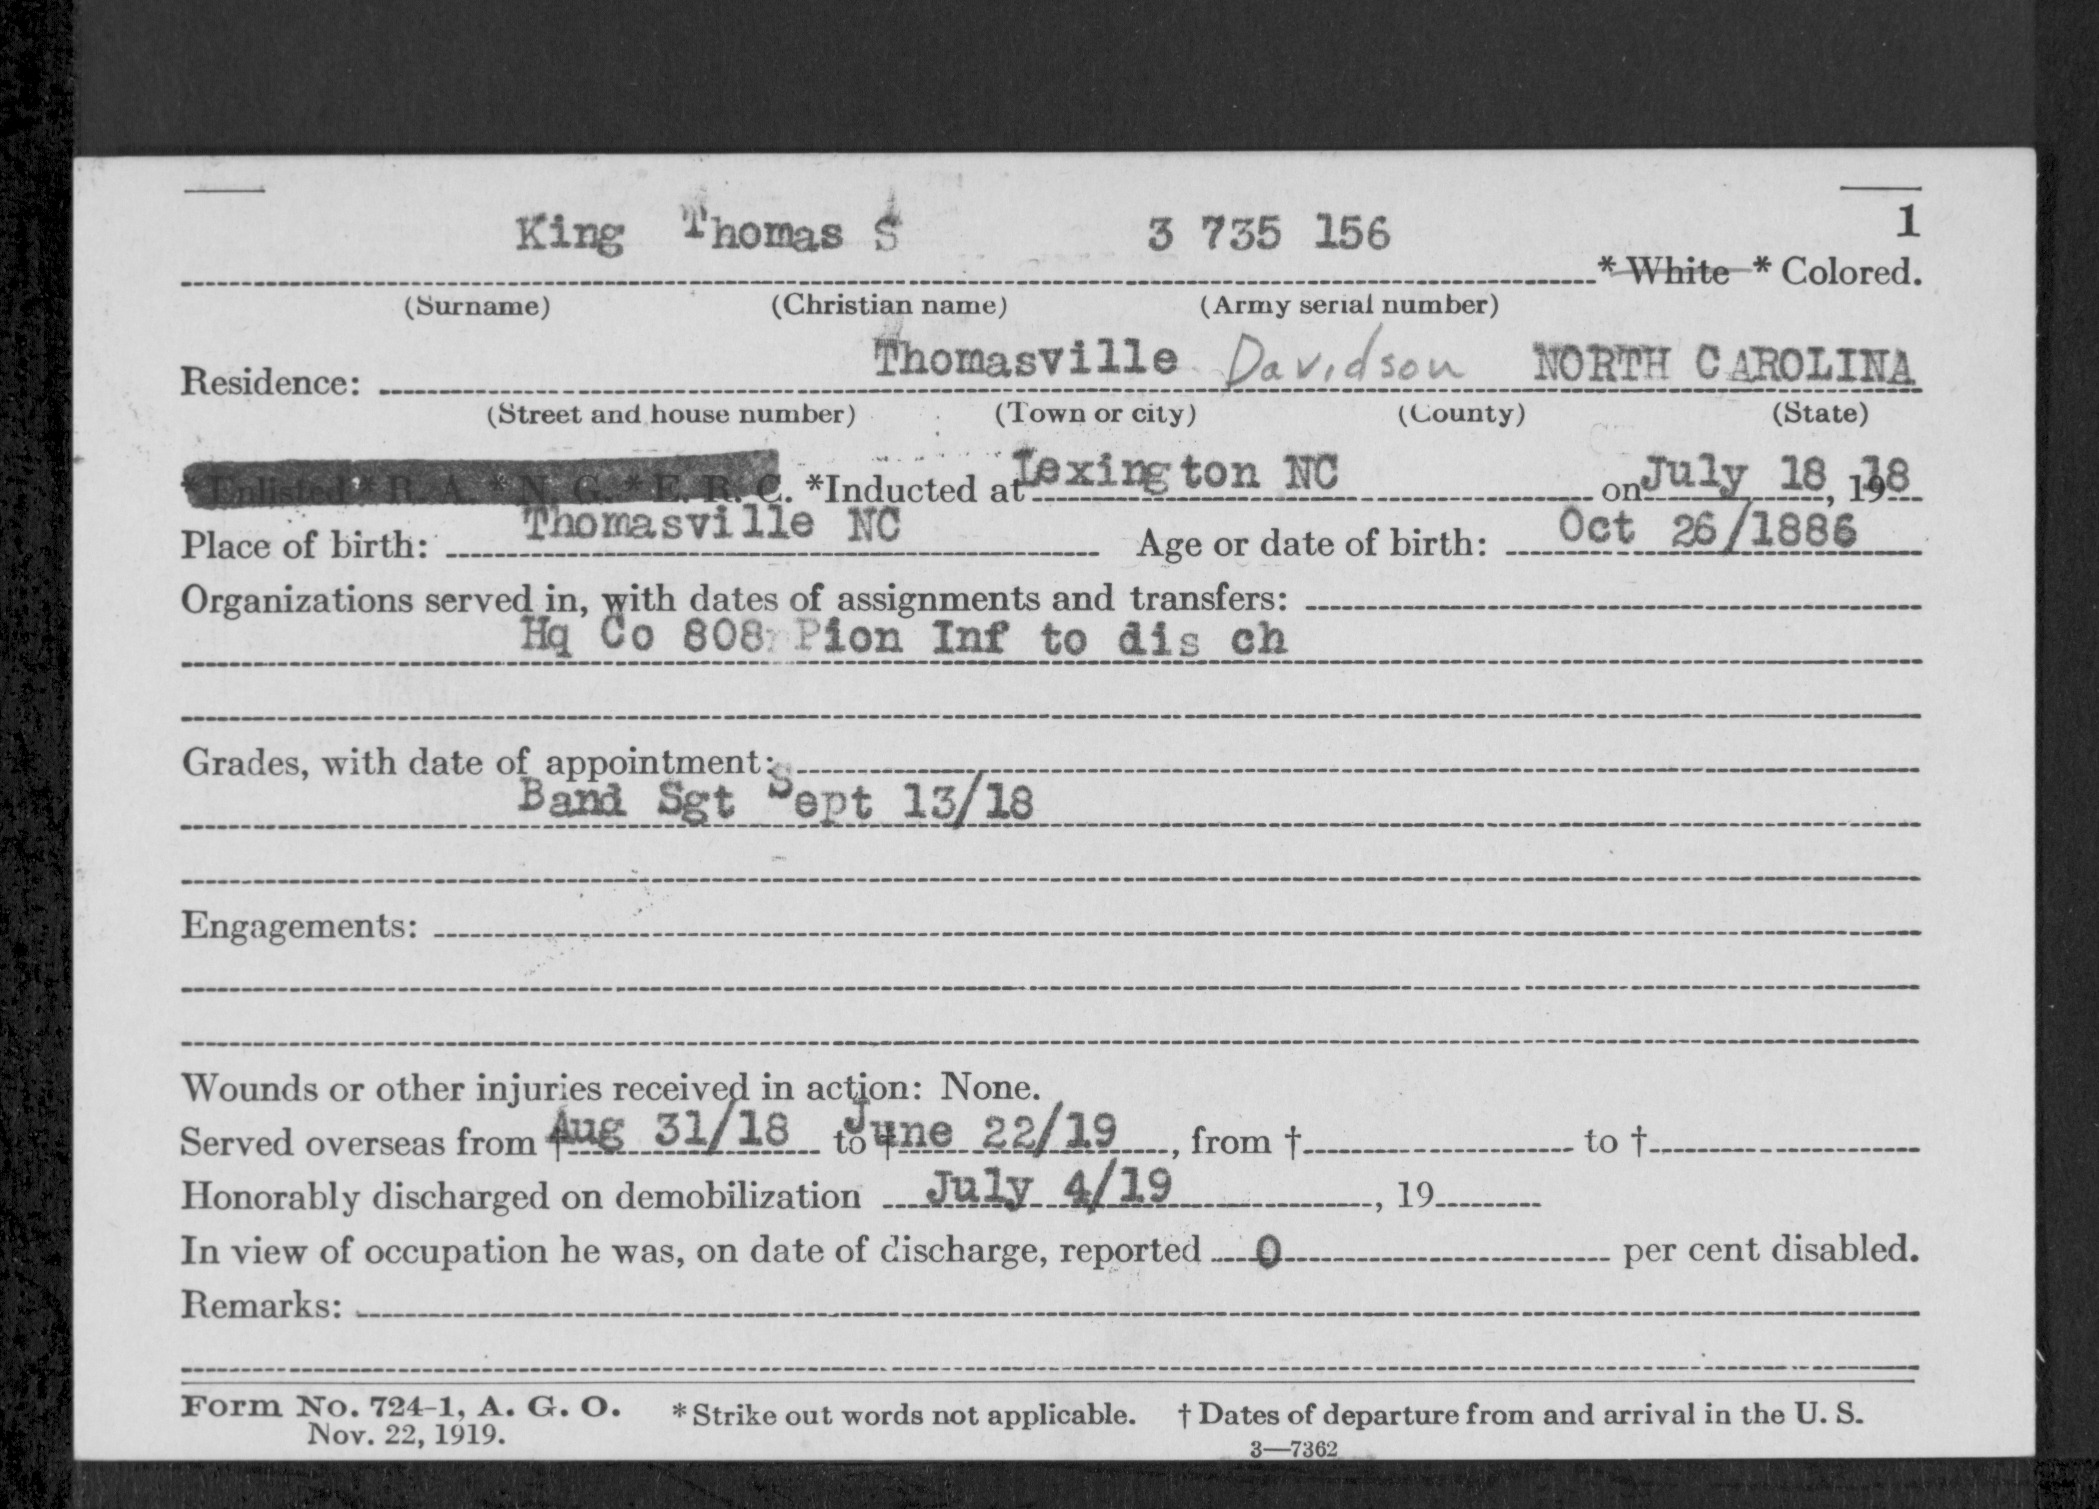 1
King Thomas S 3 735 156
* White * Colored.
(Surname) (Christian name) (Army serial number)
Residence: Thomasville Davidson NORTH CAROLINA
(Street and house number) (Town or city) (County) (State)
* Enlisted * R. A. * N. G. * E. R. C. *Inducted at Lexington NC on July 18, 1918
Place of birth: Thomasville NC Age or date of birth: Oct 26/1886
Organizations served in, with dates of assignments and transfers:
Hq Co 808 Pion Inf to dis ch
Grades, with date of appointment:
Band Sgt Sept 13/18
Engagements:
Wounds or other injuries received in action: None.
Served overseas from † Aug 31/18 to † June 22/19, from † to †
Honorably discharged on demobilization July 4/19, 19
In view of occupation he was, on date of discharge, reported 0 per cent disabled.
Remarks:
Form No. 724-1, A. G. O. *Strike out words not applicable. † Dates of departure from and arrival in the U. S.
Nov. 22, 1919.
3—7362